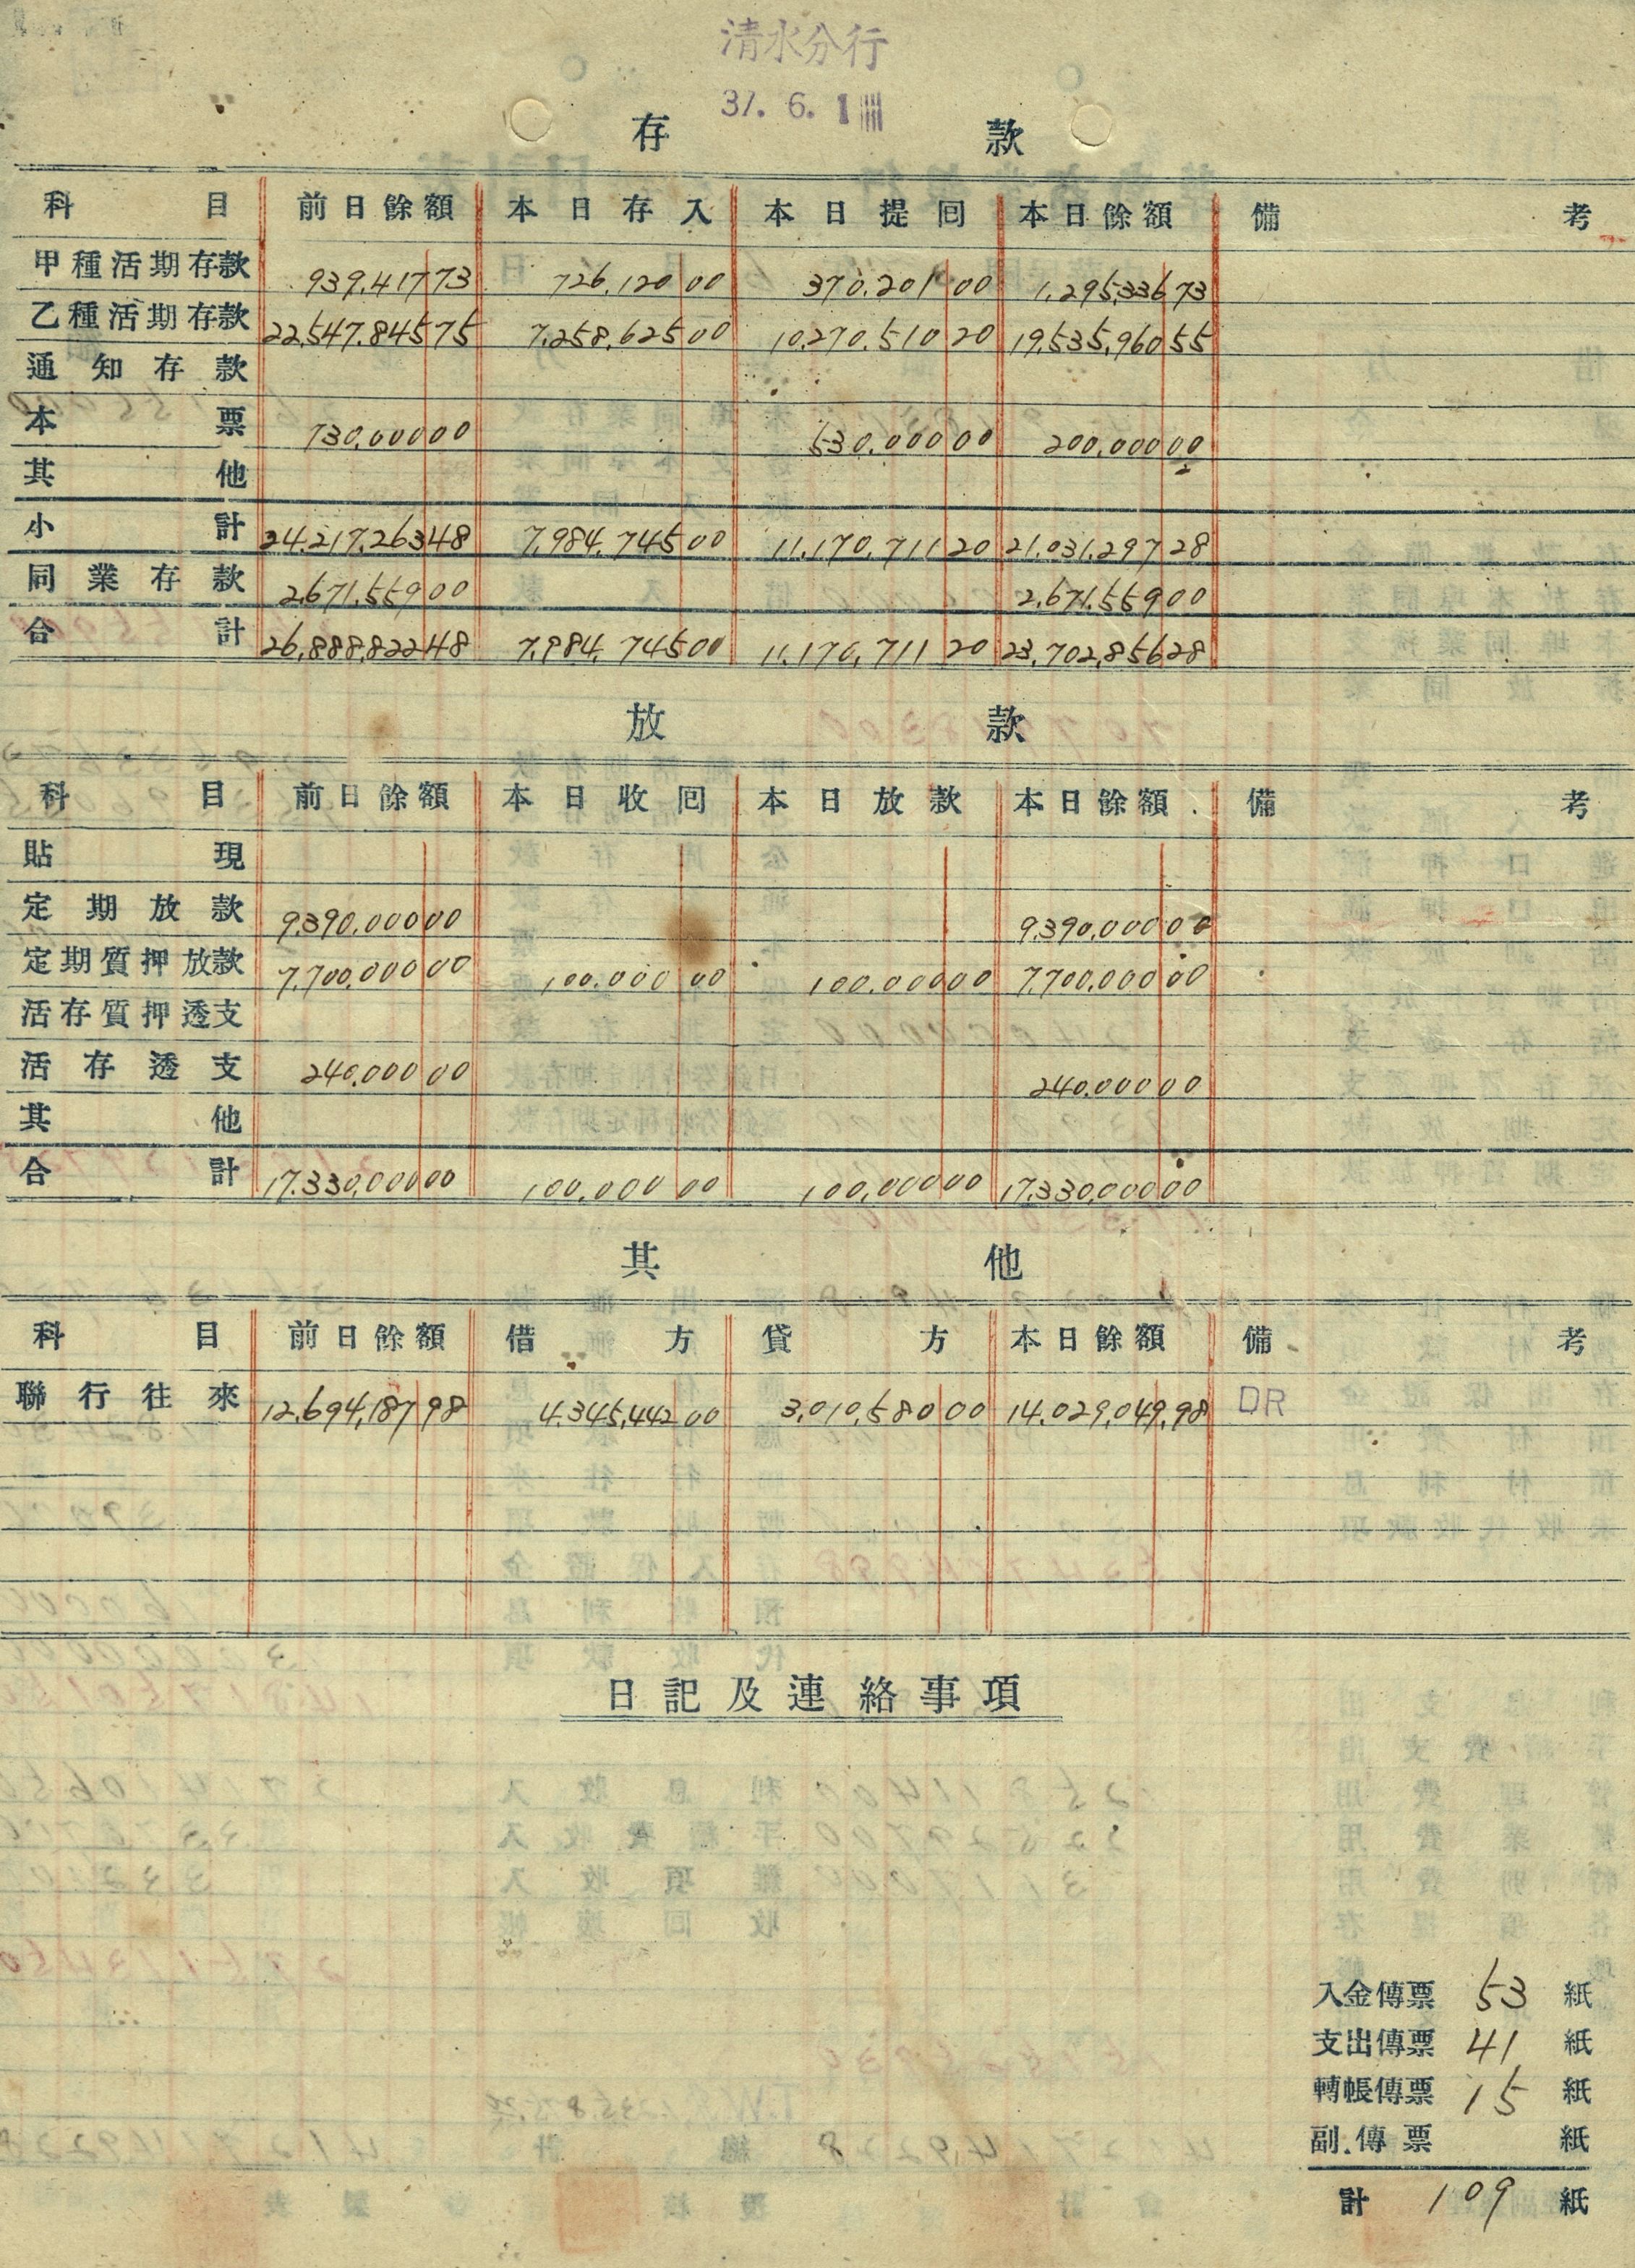 清水分行
37. 6. 1
存 款
科目 前日餘額 本日存入 本日提囘 本日餘額 備考
甲種活期存款 939,417 73 726,120 00 370,201 00 1,295,336 73
乙種活期存款 22,547,845 75 7,258,625 00 10,270,510 20 19,535,960 55
通知存款
本票 730,000 00 530,000 00 200,000 00
其他
小計 24,217,263 48 7,984,745 00 11,170,711 20 21,031,297 28
同業存款 2,671,559 00 2,671,559 00
合計 26,888,822 48 7,984,745 00 11,170,711 20 23,702,856 28
放 款
科目 前日餘額 本日收囘 本日放款 本日餘額 備考
貼現
定期放款 9,390,000 00 9,390,000 00
定期質押放款 7,700,000 00 100,000 00 100,000 00 7,700,000 00
活存質押透支
活存透支 240,000 00 240,000 00
其他
合計 17,330,000 00 100,000 00 100,000 00 17,330,000 00
其 他
科目 前日餘額 借方 貸方 本日餘額 備考
聯行往來 12,694,187 98 4,345,442 00 3,010,580 00 14,029,049,98 DR
日記及連絡事項
入金傳票 53 紙
支出傳票 41 紙
轉帳傳票 15 紙
副傳票 紙
計 109 紙